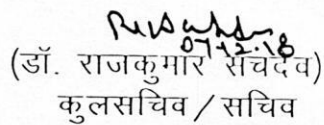 07.12.18
(डॉ. राजकुमार सचदेव)
कुलसचिव / सचिव